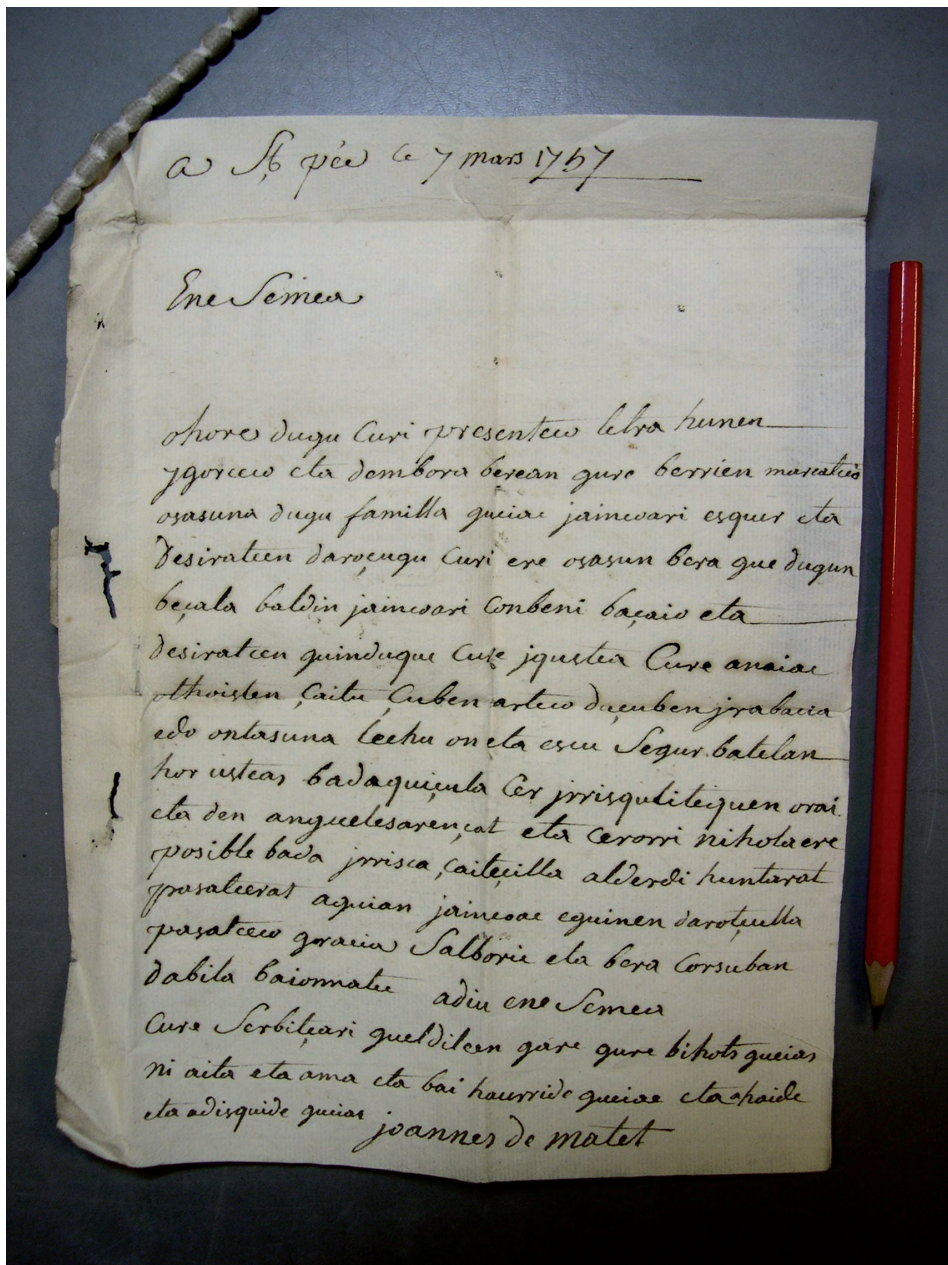 a St pée le 7 mars 1757
Ene Semea
ohore dugu Curi presenteco letra hunen
ygorceco eta dembora berean gure berrien marcatceco
osasuna dugu familla guciac jaincoari esquer eta
Desiratcen daroçugu Curi ere osasun bera gue dugun
beçala baldin jaincoari Conbeni baçaio eta
desiratcen guinduque Cure jqustea Cure anaiac
othoisten Çaitu Çuben arteco duçuben jrabacia
edo ontasuna Lechu on eta escu Segur batetan
hor usteas badaquiçula Cer jrrisqu ditequen orai
eta den anguelesarençat eta Cerorri nihola ere
posible bada jrrisca çaiteçilla alderdi huntarat
pasatcerat aguian jaincoac eguinen darotçulla
pasatceco goracia Salboric eta bera Corsuban
dabila baionnatic adiu ene Semea
Cure Serbitçari gueldilcen gare gure bihots gucias
ni aita eta ama eta bai haurride guciac eta ahaide
eta adisquide gucias
joannes de matet